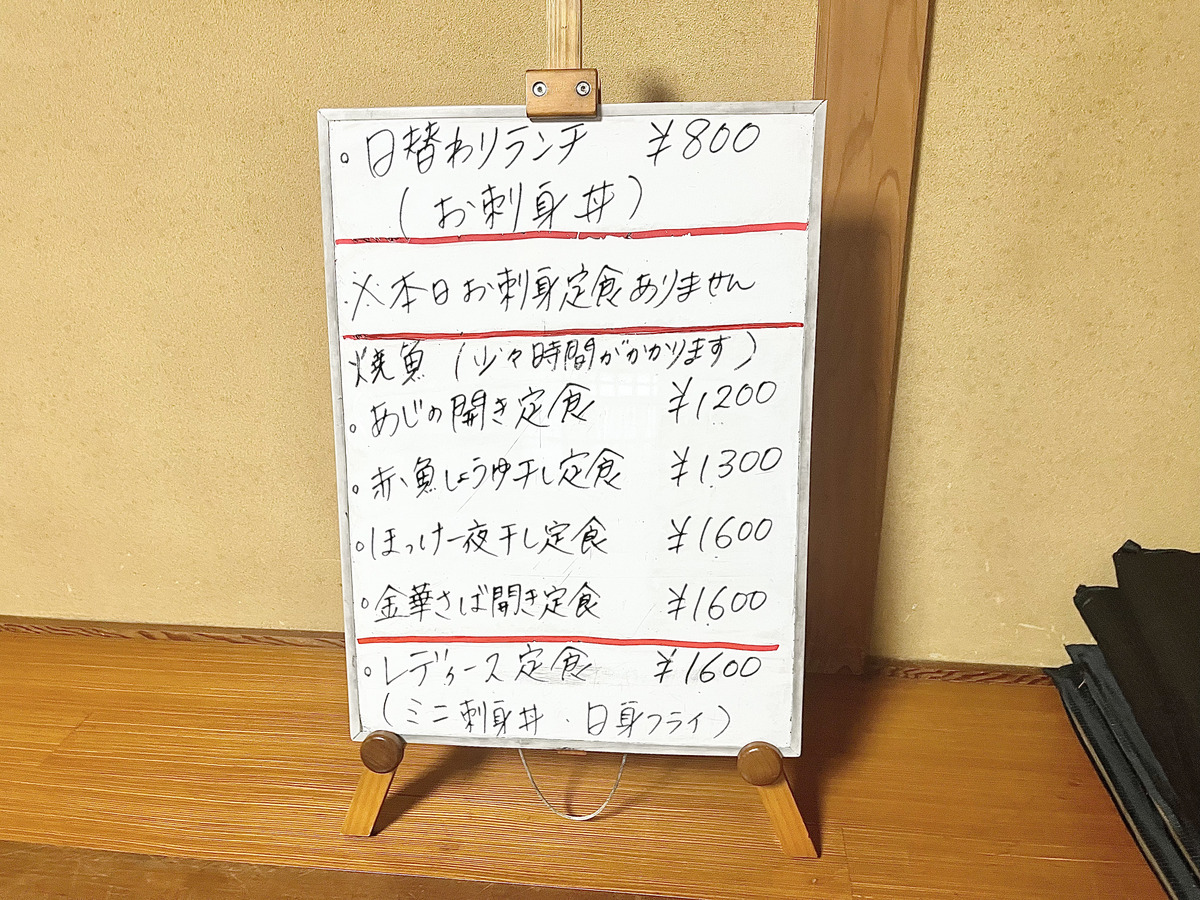 。日替わりランチ ¥800
(お刺身丼)
※本日お刺身定食ありません
焼魚(少々時間がかかります)
。あじの開き定食 ¥1200
。赤魚しょうゆ干し定食 ¥1300
。ほっけ一夜干し定食 ¥1600
。金華さば開き定食 ¥1600
。レディース定食 ¥1600
(ミニ刺身丼・白身フライ)